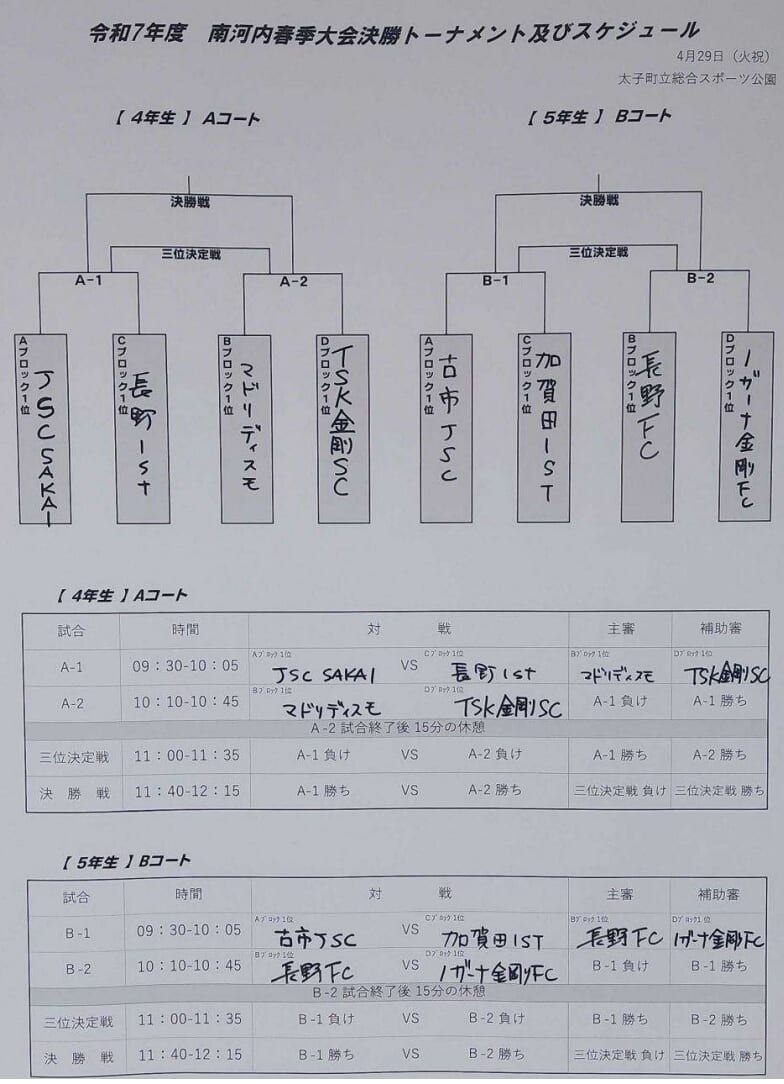 令和7年度 南河内春季大会決勝トーナメント及びスケジュール
4月29日（火祝）
太子町立総合スポーツ公園
【 4年生 】 Aコート
【 5年生 】 Bコート
決勝戦
三位決定戦
A-1
A-2
Aブロック1位
JSCSAKAI
Cブロック1位
長野1st
Bブロック1位
マドリディスモ
Dブロック1位
TSK金剛SC
決勝戦
三位決定戦
B-1
B-2
Aブロック1位
古市JSC
Cブロック1位
加賀田1ST
Bブロック1位
長野FC
Dブロック1位
ノガーナ金剛FC
【 4年生 】Aコート
試合 時間 対 戦 主審 補助審
Aブロック1位 Cブロック1位 Bブロック1位 Dブロック1位
A-1 09：30-10：05 JSC SAKAI VS 長野1st マドリディスモ TSK金剛SC
Bブロック1位 Dブロック1位
A-2 10：10-10：45 マドリディスモ TSK金剛SC A-1 負け A-1 勝ち
A-2 試合終了後 15分の休憩
三位決定戦 11：00-11：35 A-1 負け VS A-2 負け A-1 勝ち A-2 勝ち
決 勝 戦 11：40-12：15 A-1 勝ち VS A-2 勝ち 三位決定戦 負け 三位決定戦 勝ち
【 5年生 】Bコート
試合 時間 対 戦 主審 補助審
Aブロック1位 Cブロック1位 Bブロック1位 Dブロック1位
B-1 09：30-10：05 古市JSC VS 加賀田1ST 長野FC ノガーナ金剛FC
Bブロック1位 Dブロック1位
B-2 10：10-10：45 長野FC VS ノガーナ金剛FC B-1 負け B-1 勝ち
B-2 試合終了後 15分の休憩
三位決定戦 11：00-11：35 B-1 負け VS B-2 負け B-1 勝ち B-2 勝ち
決 勝 戦 11：40-12：15 B-1 勝ち VS B-2 勝ち 三位決定戦 負け 三位決定戦 勝ち